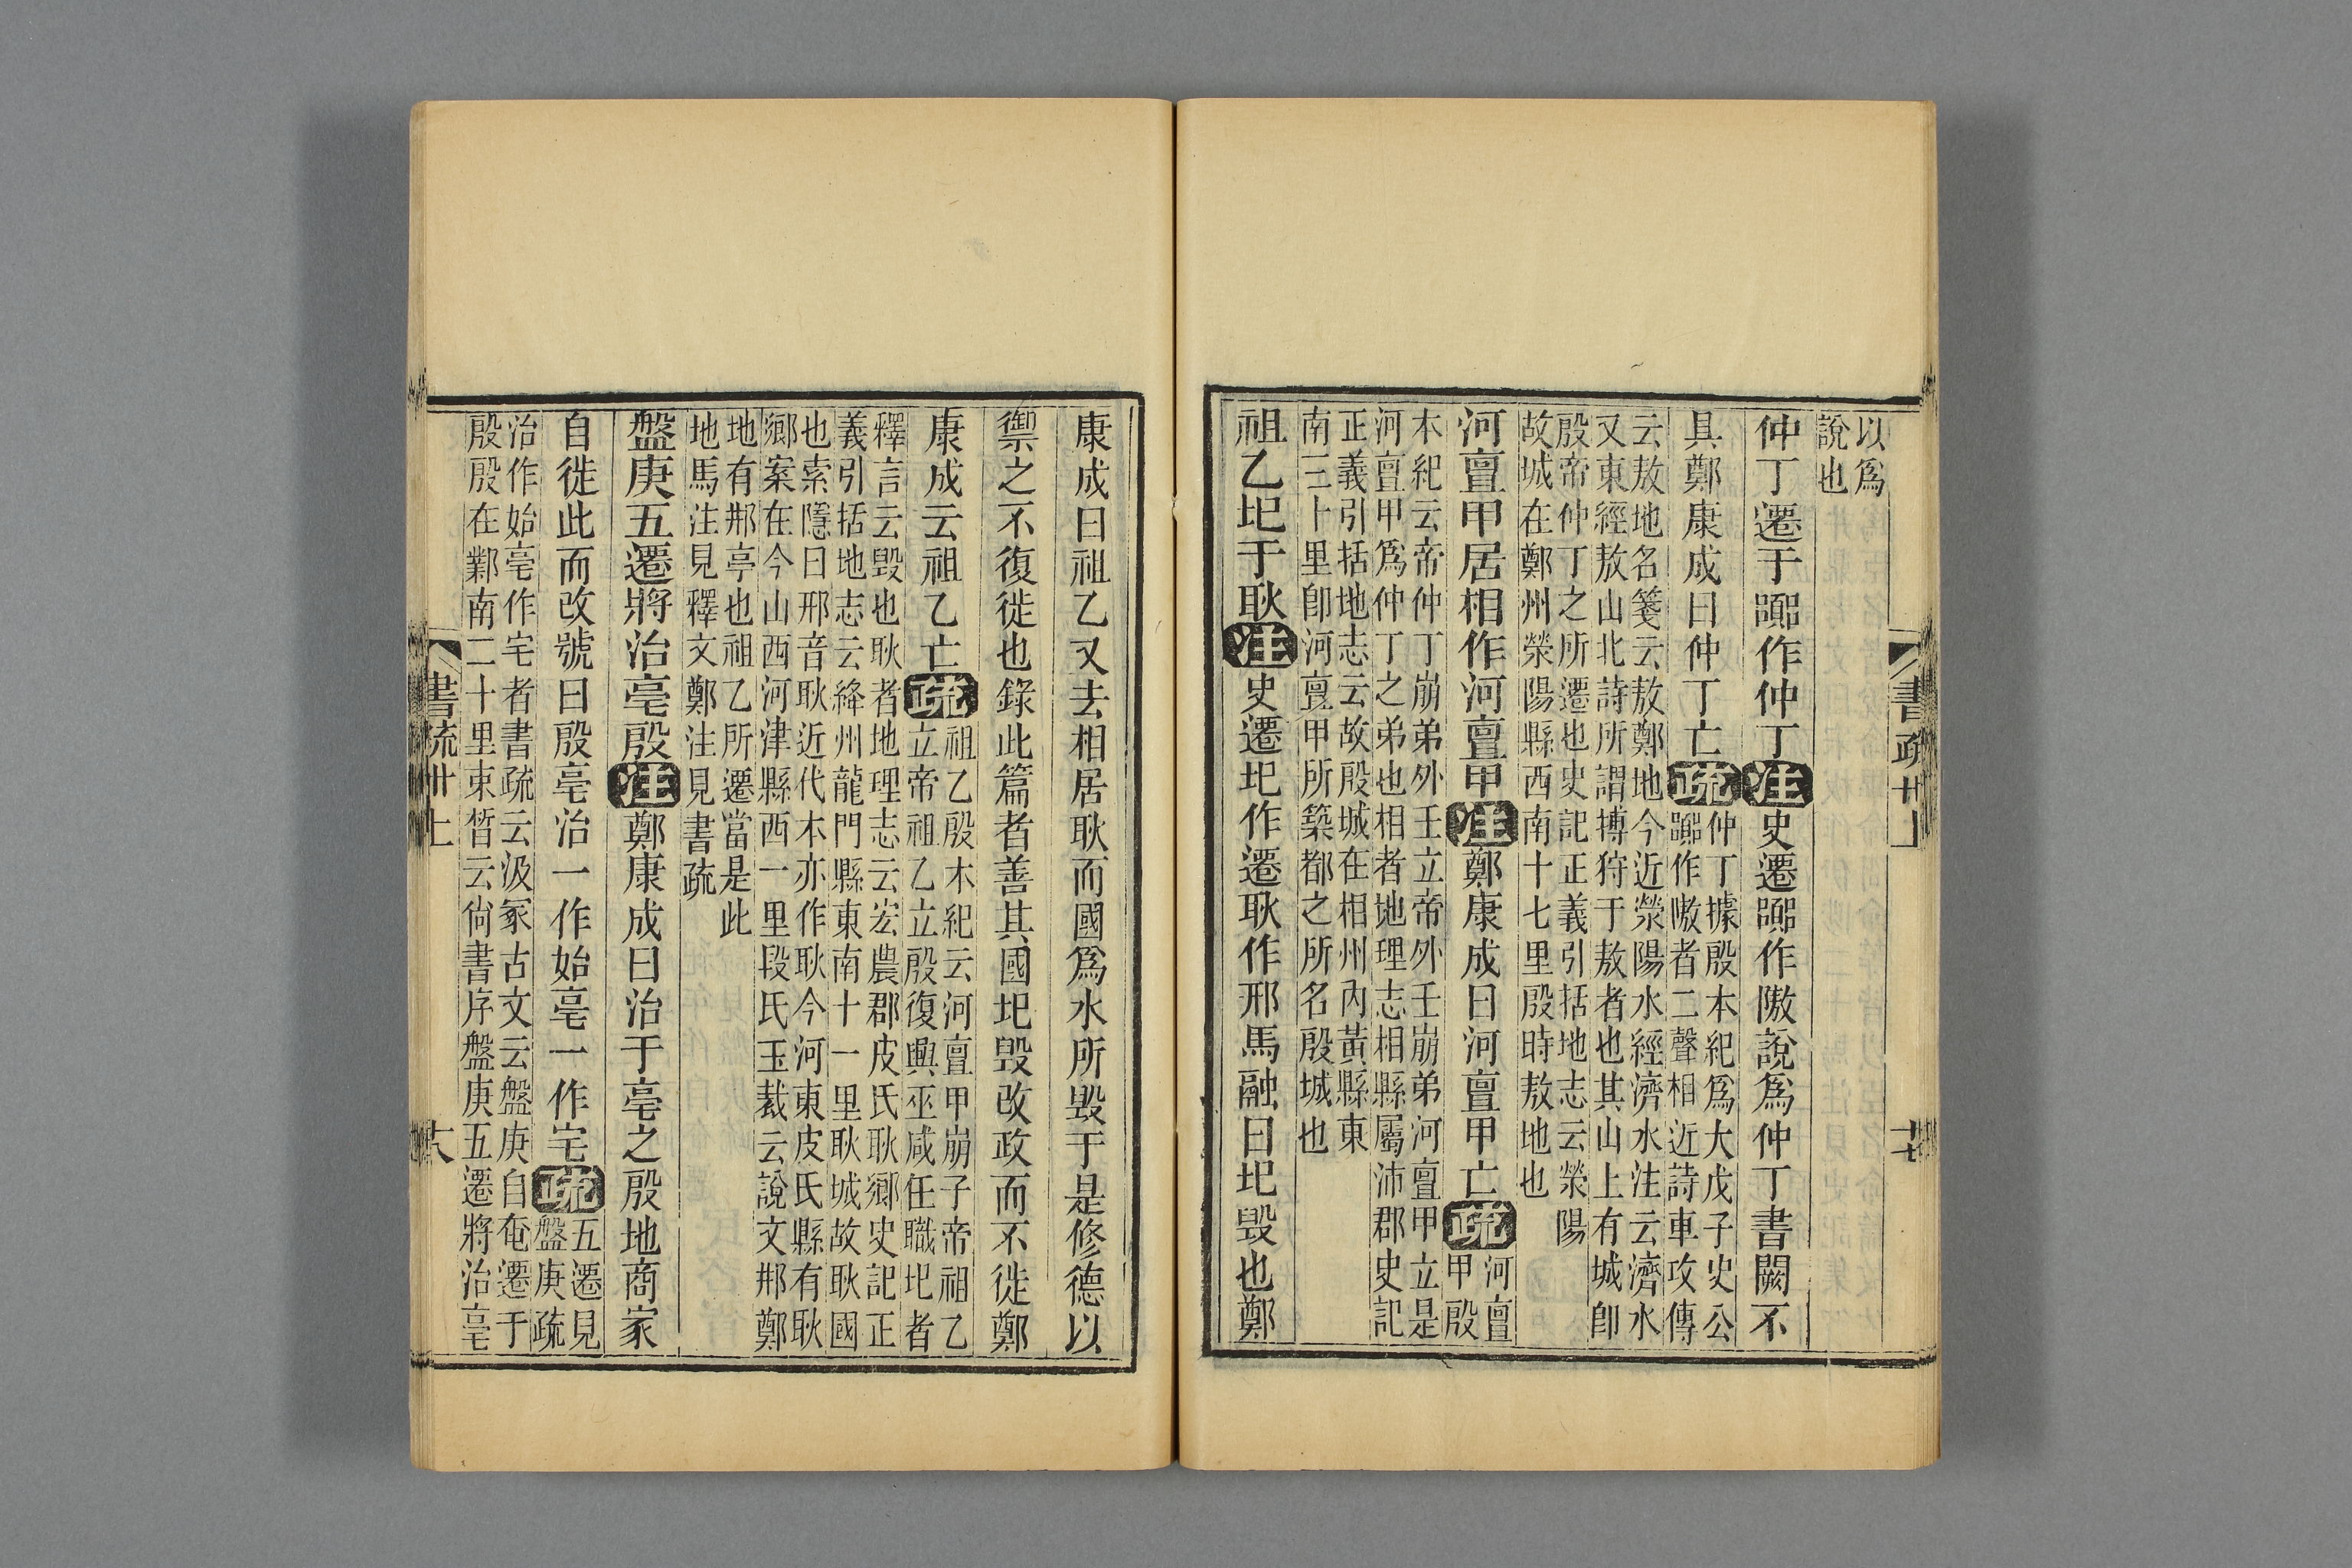 以爲
說也
仲丁遷于嚻作仲丁注史遷嚻作隞說爲仲丁書闕不
具鄭康成曰仲丁亡疏
仲丁據殷本紀爲大戊子史公
嚻作隞者二聲相近詩車攻傳
云敖地名箋云敖鄭地今近滎陽水經濟水注云濟水
又東經敖山北詩所謂搏狩于敖者也其山上有城卽
殷帝仲丁之所遷也史記正義引括地志云滎陽
故城在鄭州滎陽縣西南十七里殷時敖地也
河亶甲居相作河亶甲注鄭康成曰河亶甲亡疏
河亶
甲殷
本紀云帝仲丁崩弟外壬立帝外壬崩弟河亶甲立是
河亶甲爲仲丁之弟也相者地理志相縣屬沛郡史記
正義引括地志云故殷城在相州內黃縣東
南三十里卽河亶甲所築都之所名殷城也
祖乙圯于耿注史遷圯作遷耿作邢馬融曰圯毀也鄭
書疏卅上
十七
康成曰祖乙又去相居耿而國爲水所毀于是修德以
禦之不復徙也錄此篇者善其國圯毀改政而不徙鄭
康成云祖乙亡疏
祖乙殷本紀云河亶甲崩子帝祖乙
立帝祖乙立殷復興巫咸任職圯者
釋言云毀也耿者地理志云宏農郡皮氏耿鄉史記正
義引括地志云絳州龍門縣東南十一里耿城故耿國
也索隱曰邢音耿近代本亦作耿今河東皮氏縣有耿
鄉案在今山西河津縣西一里段氏玉裁云說文邢鄭
地有邢亭也祖乙所遷當是此
地馬注見釋文鄭注見書疏
盤庚五遷將治亳殷注鄭康成曰治于亳之殷地商家
自徙此而改號曰殷亳治一作始亳一作宅疏
五遷見
盤庚疏
治作始亳作宅者書疏云汲冢古文云盤庚自奄遷于
殷殷在鄴南二十里束晳云尙書序盤庚五遷將治亳
書疏卅上
十八